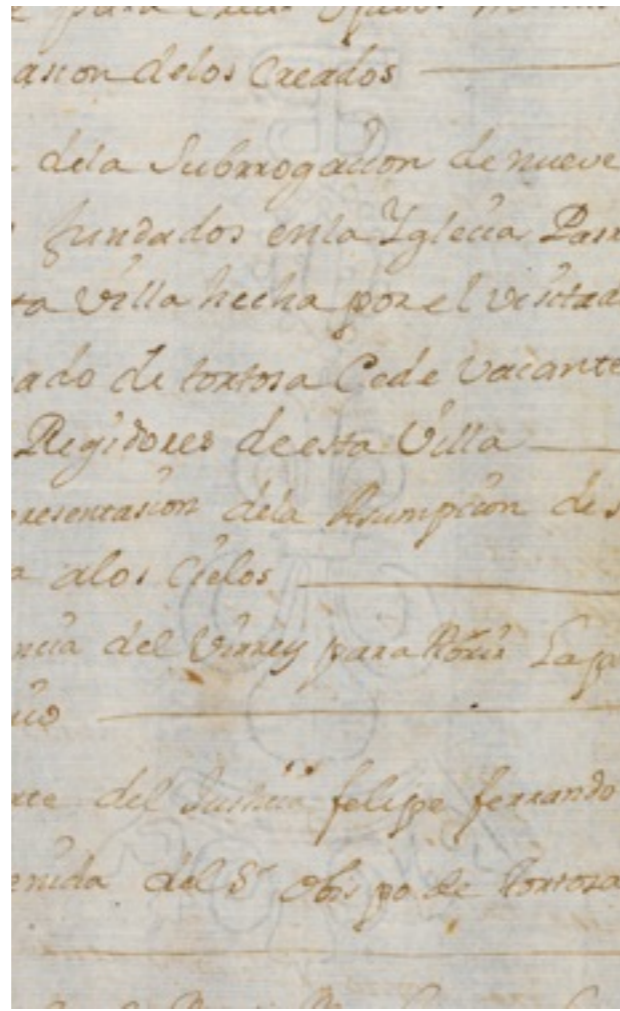 para Crear
asion delos Creados
dela Subrrogacion de nueve
fundados enla Yglecia Parr
ta Villa hecha por el visitad
ado de tortosa Cede Vacante
Regidores de esta Villa
presentasion dela Asumpcion de
a alos Cielos
ncia del Virrey para
cio
rte del Justicia felipe ferrando
enida del Sr Obispo de tortosa